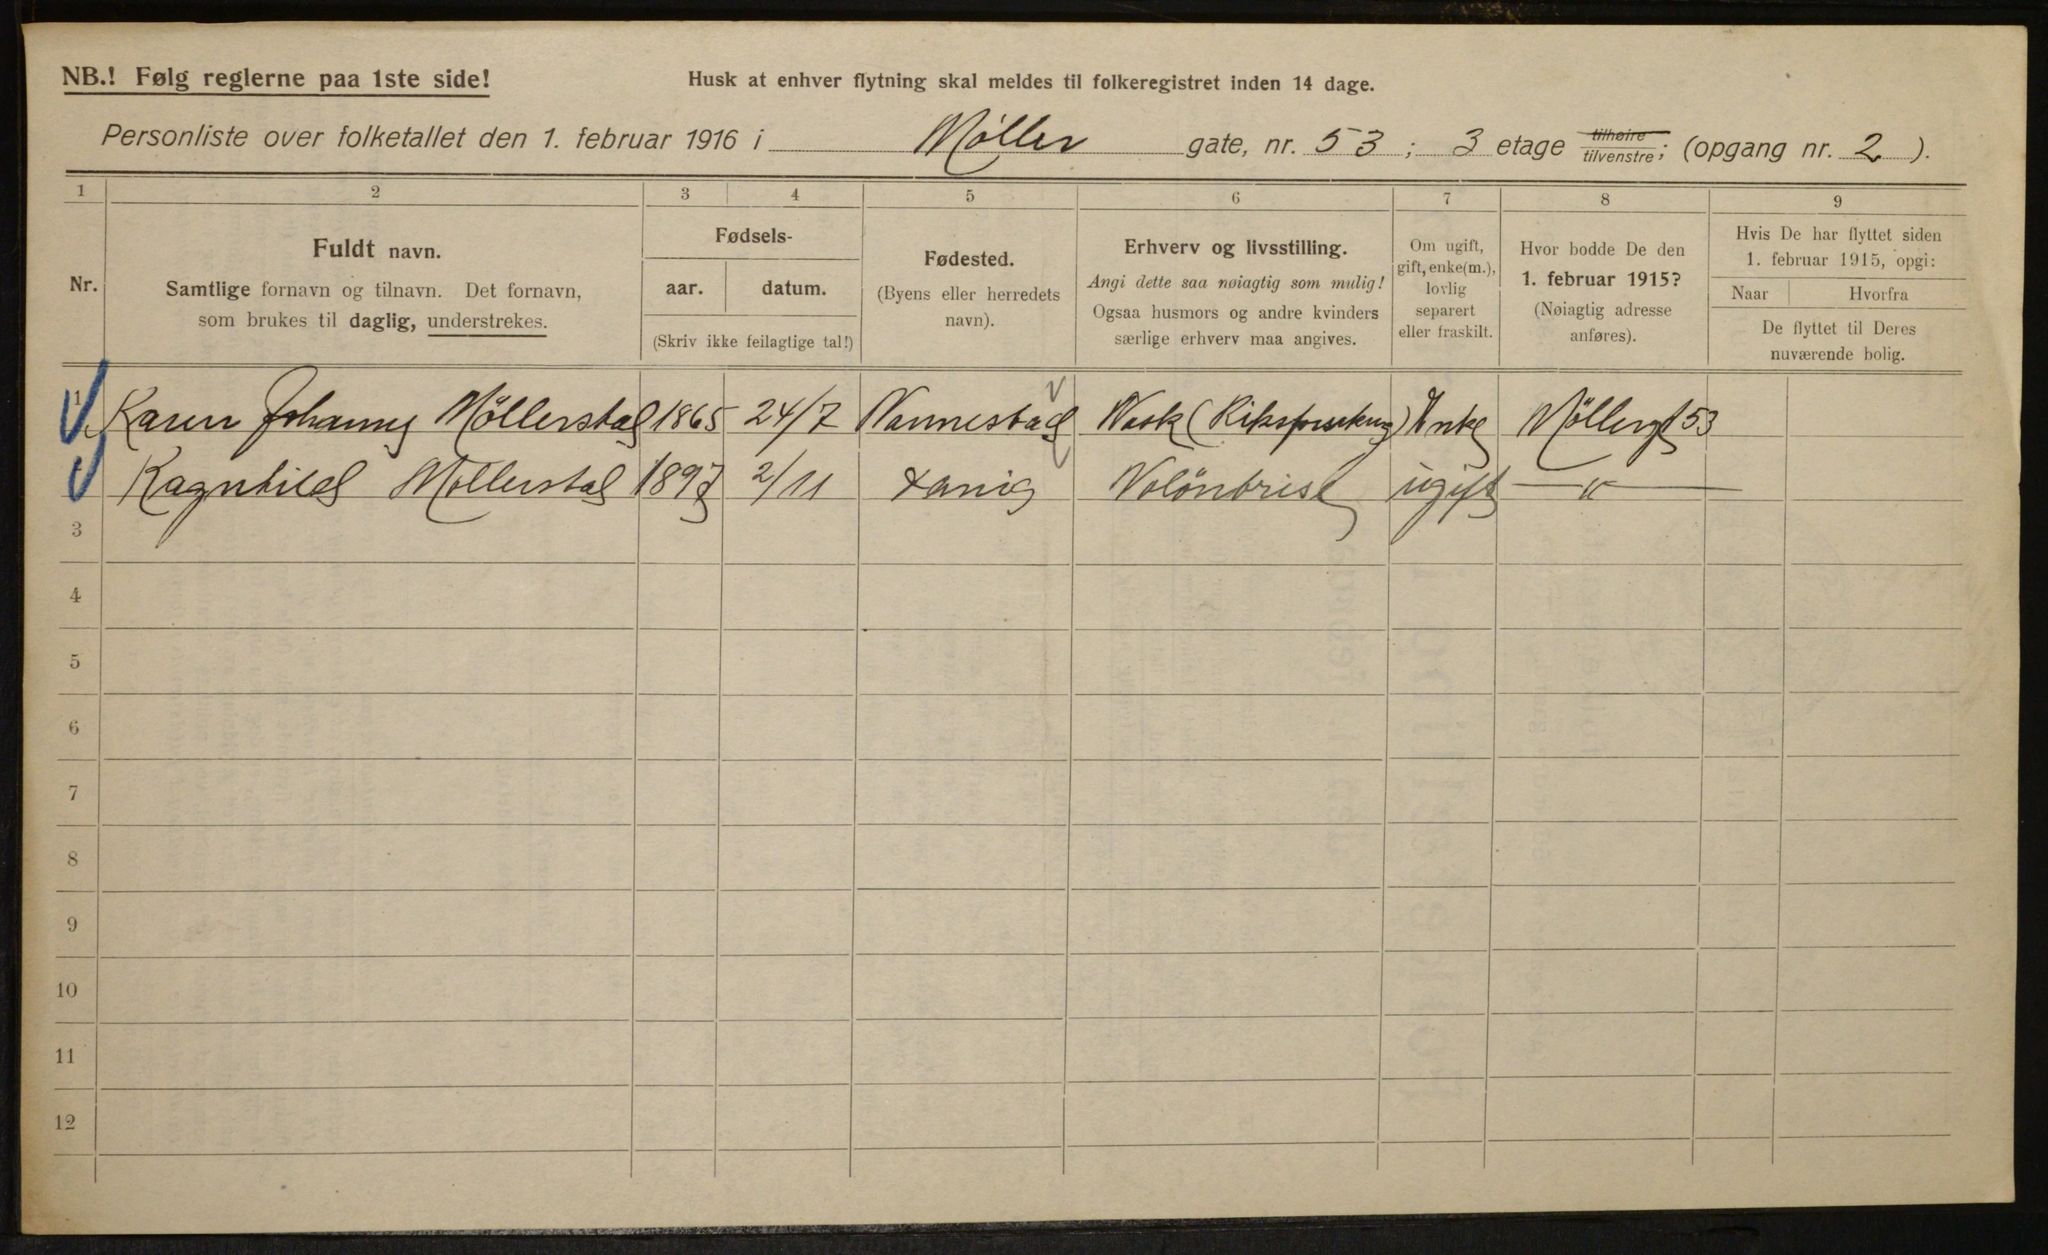 NB.! Følg reglerne paa 1ste side!
Husk at enhver flytning skal meldes til folkeregistret inden 14 dage.
Personliste over folketallet den 1. februar 1916 i Møller gate, nr. 53; 3 etage tilhøire/tilvenstre; (opgang nr. 2).
1 2 3 4 5 6 7 8 9
Nr.
Fuldt navn.
Samtlige fornavn og tilnavn. Det fornavn,
som brukes til daglig, understrekes.
Fødsels-
aar. datum.
(Skriv ikke feilagtige tal!)
Fødested.
(Byens eller herredets
navn).
Erhverv og livsstilling.
Angi dette saa nøiagtig som mulig!
Ogsaa husmors og andre kvinders
særlige erhverv maa angives.
Om ugift,
gift, enke(m.),
lovlig
separert
eller fraskilt.
Hvor bodde De den
1. februar 1915?
(Nøiagtig adresse
anføres).
Hvis De har flyttet siden
1. februar 1915, opgi:
Naar Hvorfra
De flyttet til Deres
nuværende bolig.
1 Karen Johanne Möllerstad 1865 24/7 Nannestad Vask ( ) Enke Møllergt 53
Ragnhild Möllerstad 1897 2/11 2/11 ugift —"—
3
4
5
6
7
8
9
10
11
12